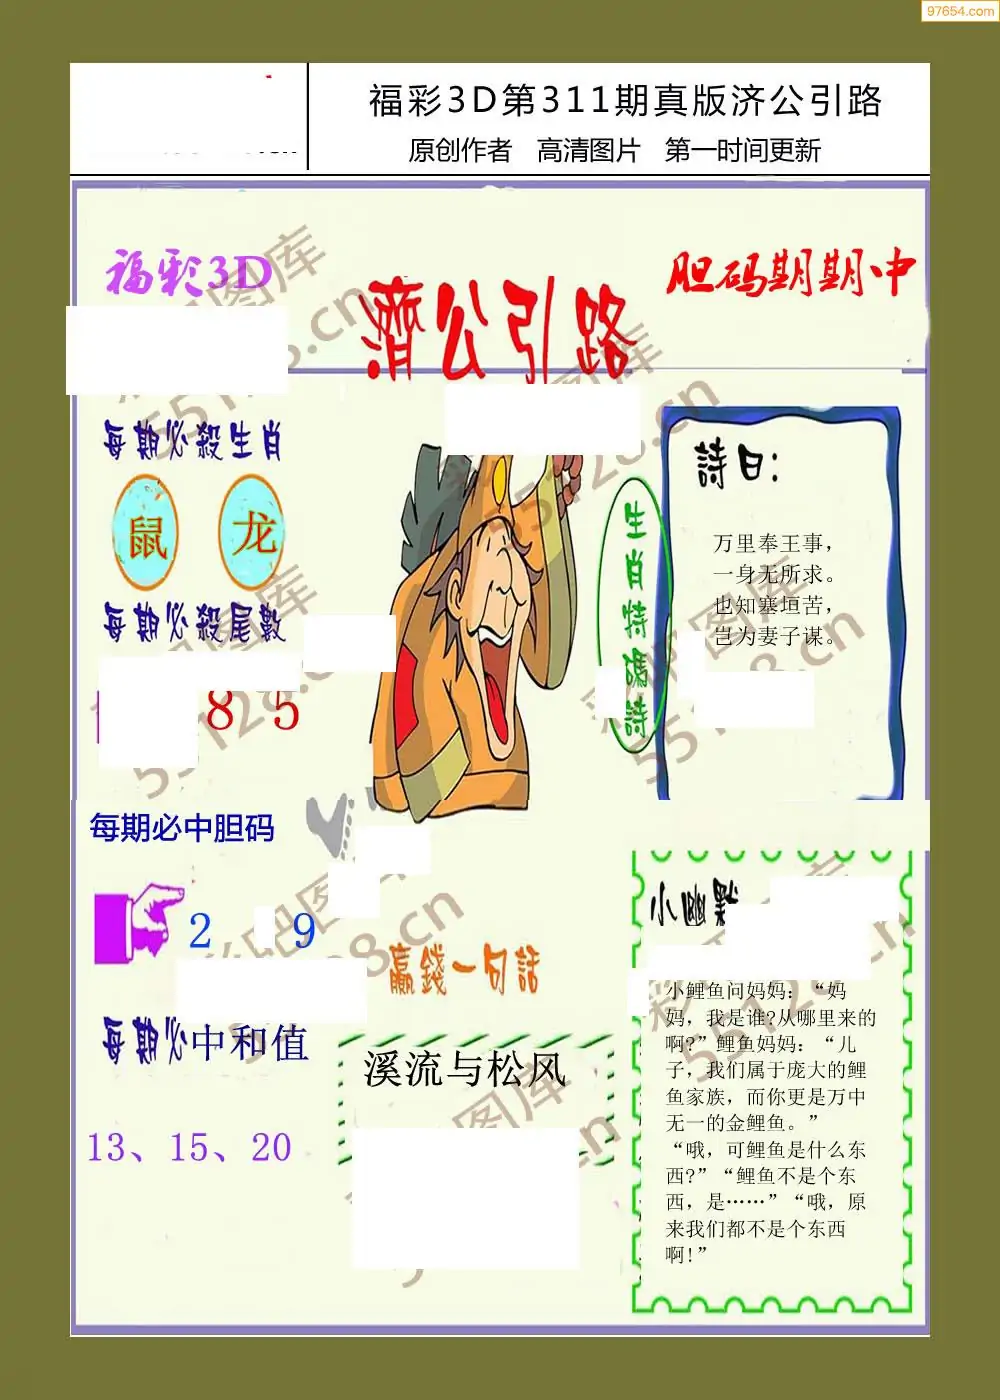 97654.com
福彩3D第311期真版济公引路
原创作者 高清图片 第一时间更新
福彩3D
胆码期期中
濟公引路
每期必殺生肖
鼠 龙
每期必殺尾數
8 5
生肖特碼詩
詩曰:
万里奉王事，
一身无所求。
也知塞垣苦，
岂为妻子谋。
每期必中胆码
2 9
每期必中和值
13、15、20
赢錢一句話
溪流与松风
小幽默
小鲤鱼问妈妈：“妈
妈，我是谁?从哪里来的
啊?”鲤鱼妈妈：“儿
子，我们属于庞大的鲤
鱼家族，而你更是万中
无一的金鲤鱼。”
“哦，可鲤鱼是什么东
西?”“鲤鱼不是个东
西，是……”“哦，原
来我们都不是个东西
啊!”
55128.cn